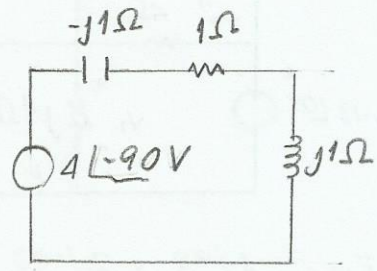 -j1Ω
1Ω
4∠-90V
j1Ω